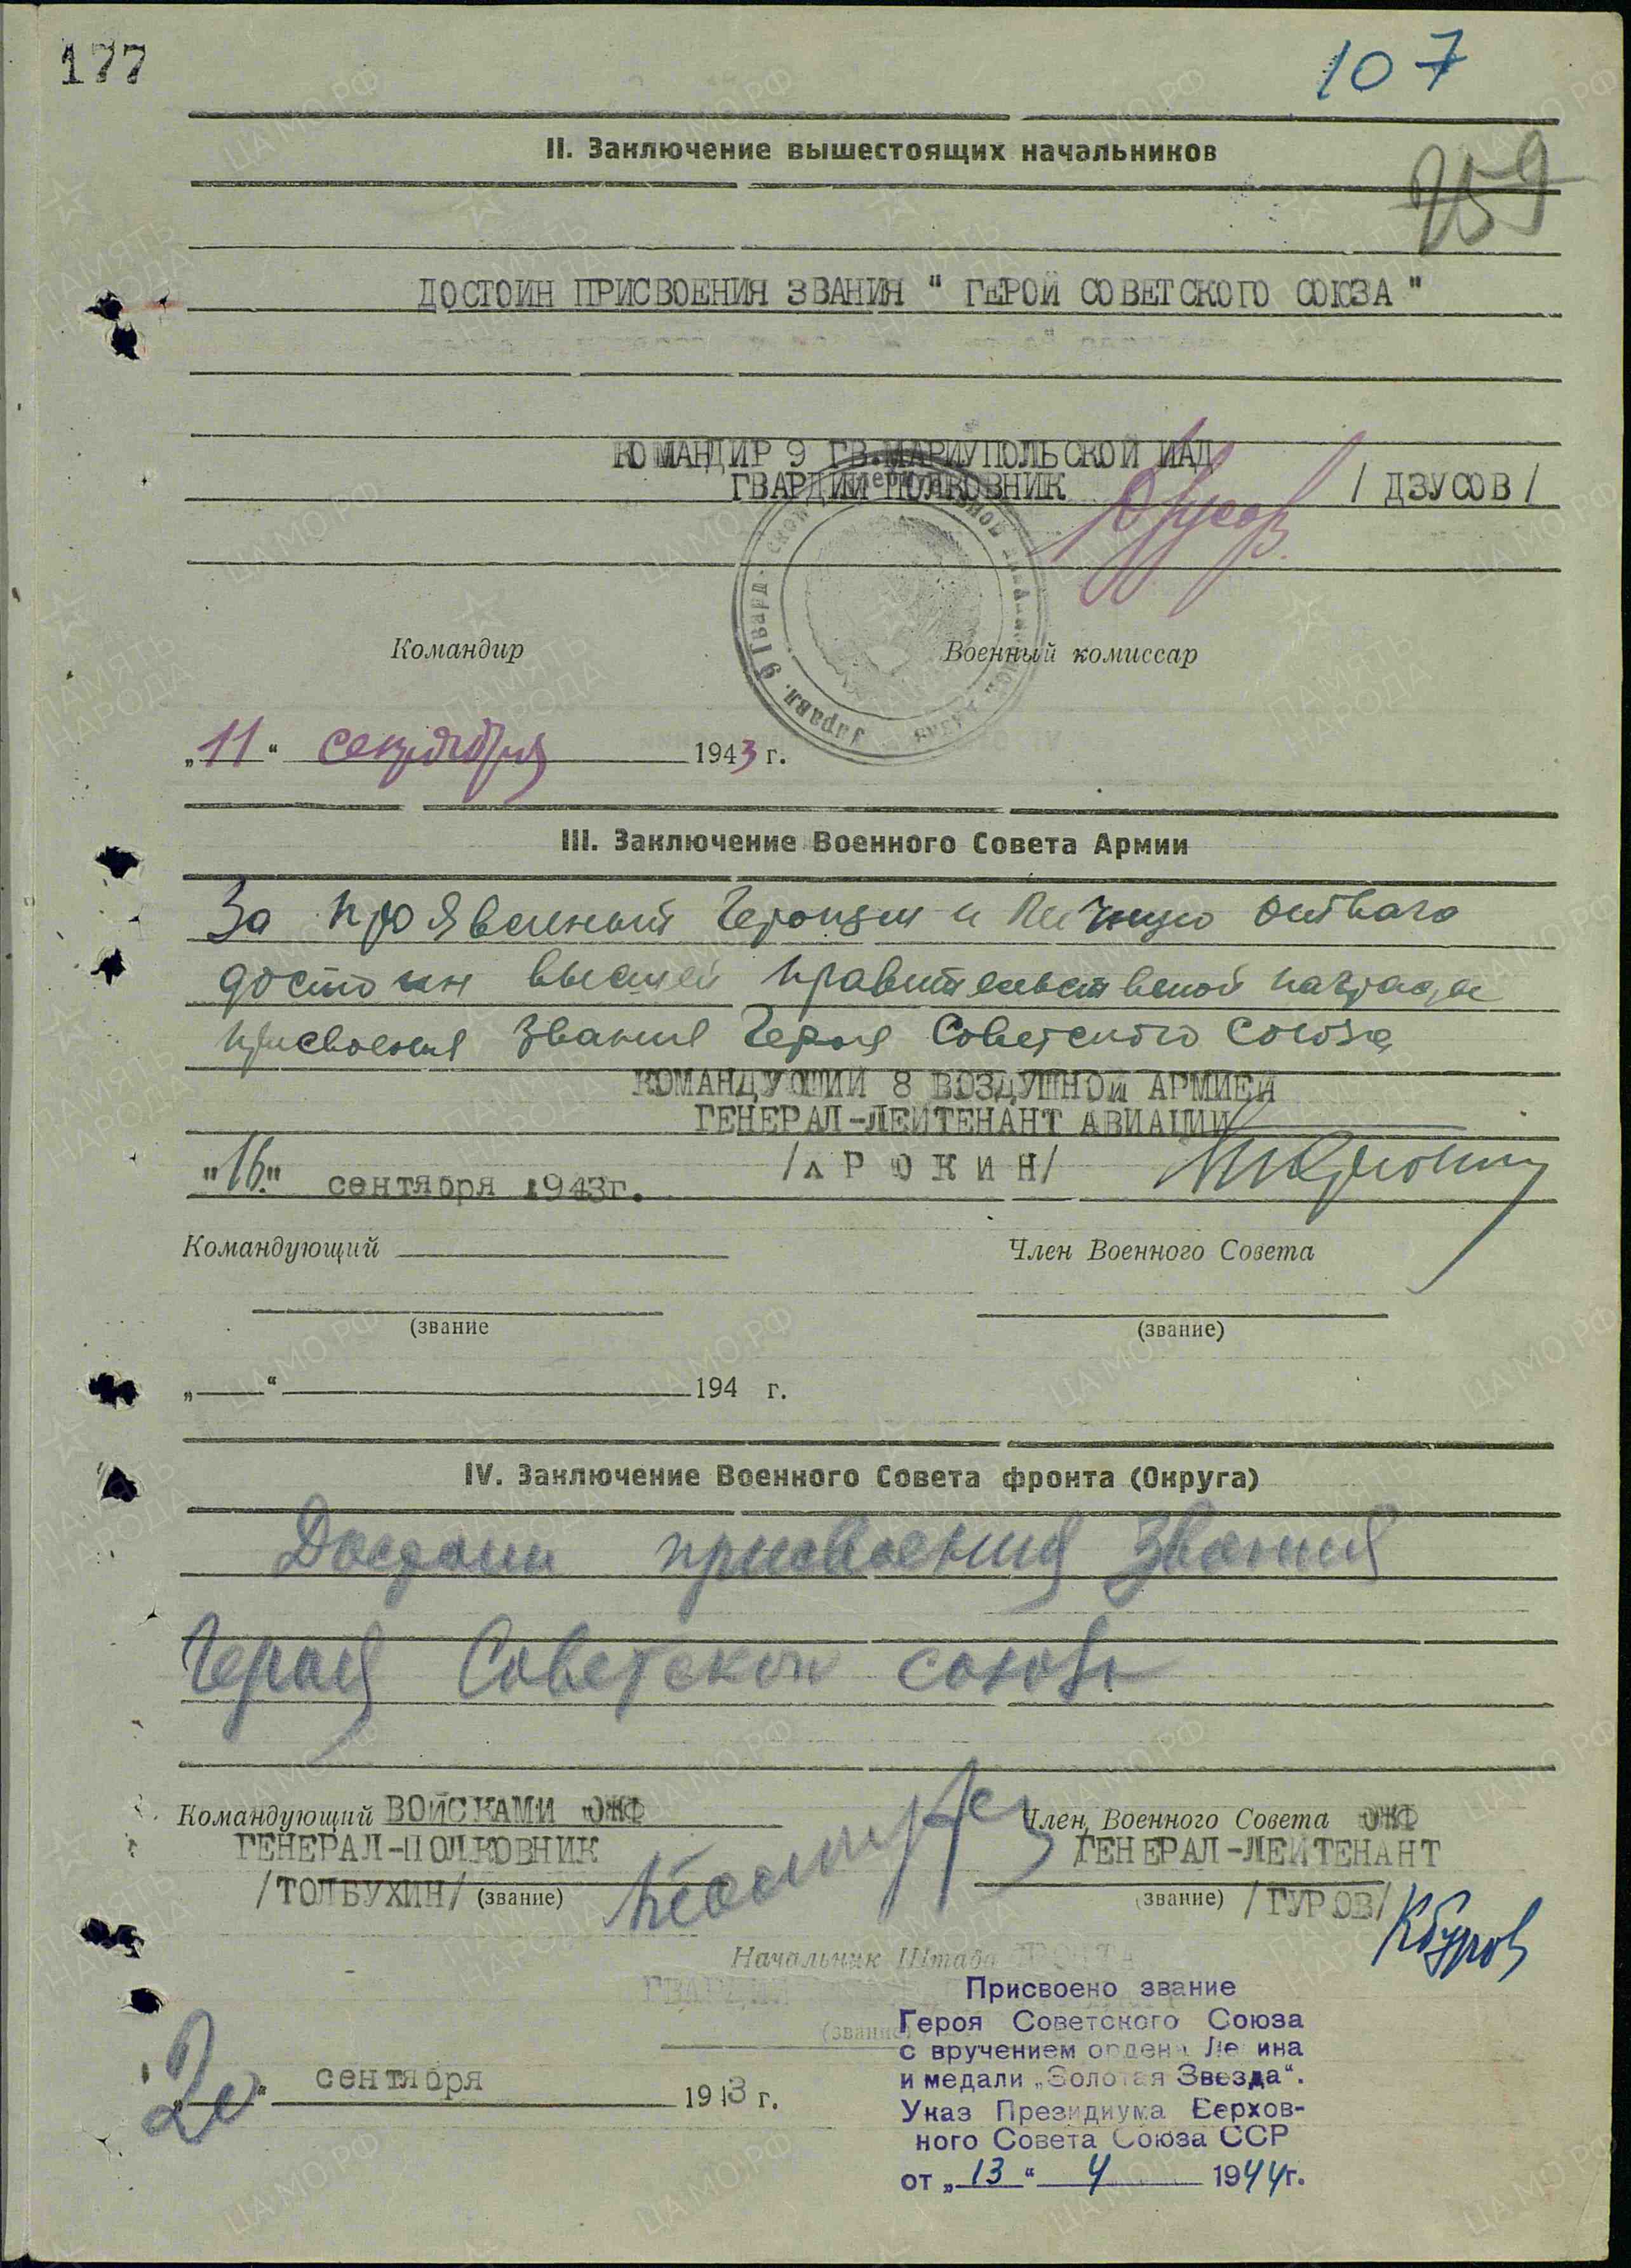 177
107
259
II. Заключение вышестоящих начальников
ДОСТОИН ПРИСВОЕНИЯ ЗВАНИЯ " ГЕРОЙ СОВЕТСКОГО СОЮЗА "
КОМАНДИР 9 ГВ.МАРИУПОЛЬСКОЙ ИАД
ГВАРДИИ ПОЛКОВНИК / ДЗУСОВ /
Командир Военный комиссар
„11“ сентября 1943 г.
III. Заключение Военного Совета Армии
За проявленный героизм и личную отвагу
достоин высшей правительственной награды
присвоения звания Героя Советского Союза
КОМАНДУЮЩИЙ 8 ВОЗДУШНОЙ АРМИЕЙ
ГЕНЕРАЛ-ЛЕЙТЕНАНТ АВИАЦИИ
"16" сентября 1943г. /ХРЮКИН/
Командующий Член Военного Совета
(звание (звание)
„ “ 194 г.
IV. Заключение Военного Совета фронта (Округа)
Достоин присвоения звания
Героя Советского союза
Командующий ВОЙСКАМИ ЮЖФ Член Военного Совета ЮЖФ
ГЕНЕРАЛ-ПОЛКОВНИК ГЕНЕРАЛ-ЛЕЙТЕНАНТ
/ТОЛБУХИН/ (звание) (звание) /ГУРОВ/
Начальник Штаба ФРОНТА
(звание)
Присвоено звание
Героя Советского Союза
с вручением ордена Ленина
и медали „Золотая Звезда“.
Указ Президиума Верхов-
ного Совета Союза ССР
от „13“ 4 1944г.
„20“ сентября 1943 г.